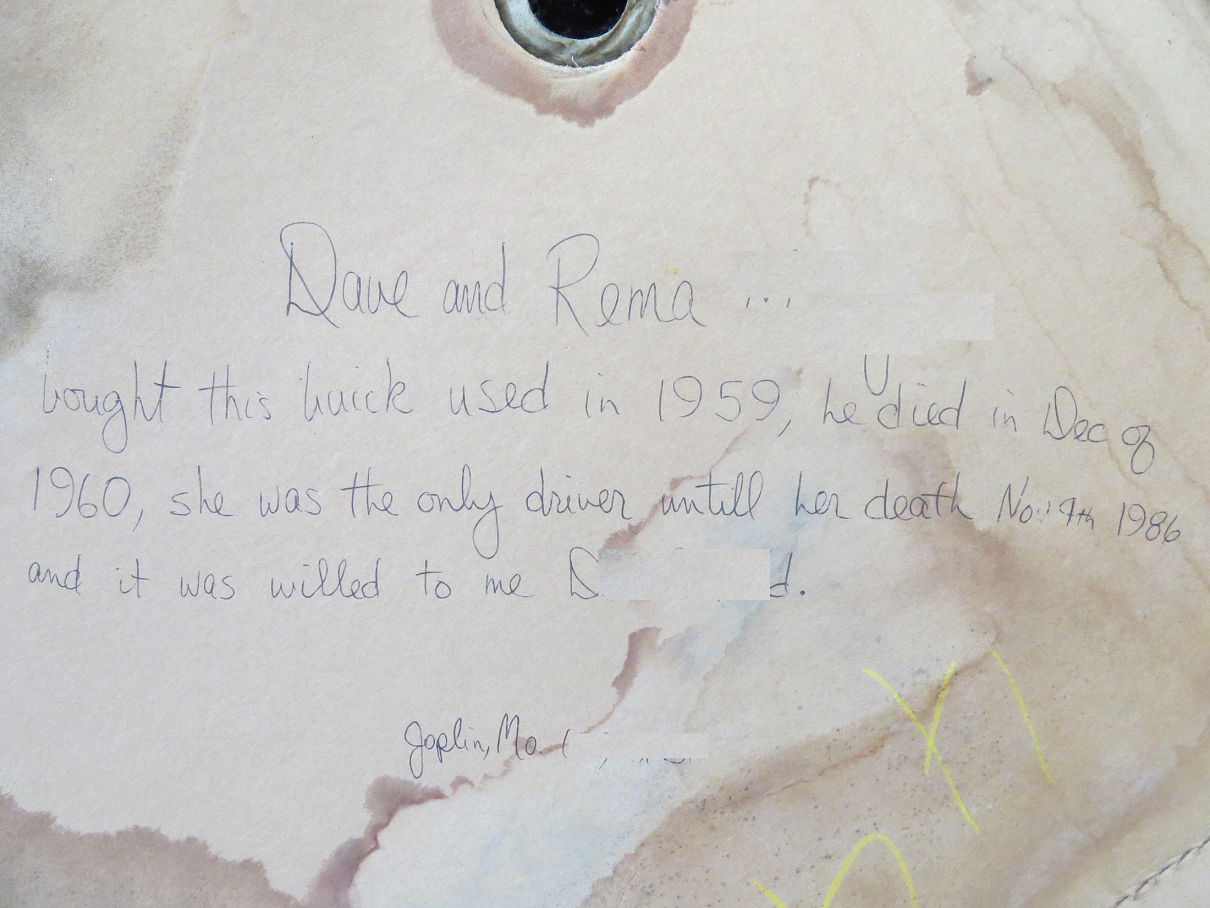 Dave and Rema ...
bought this buick used in 1959, he died in Dec of
1960, she was the only driver untill her death No.: 9th 1986
and it was willed to me
Joplin, Mo.